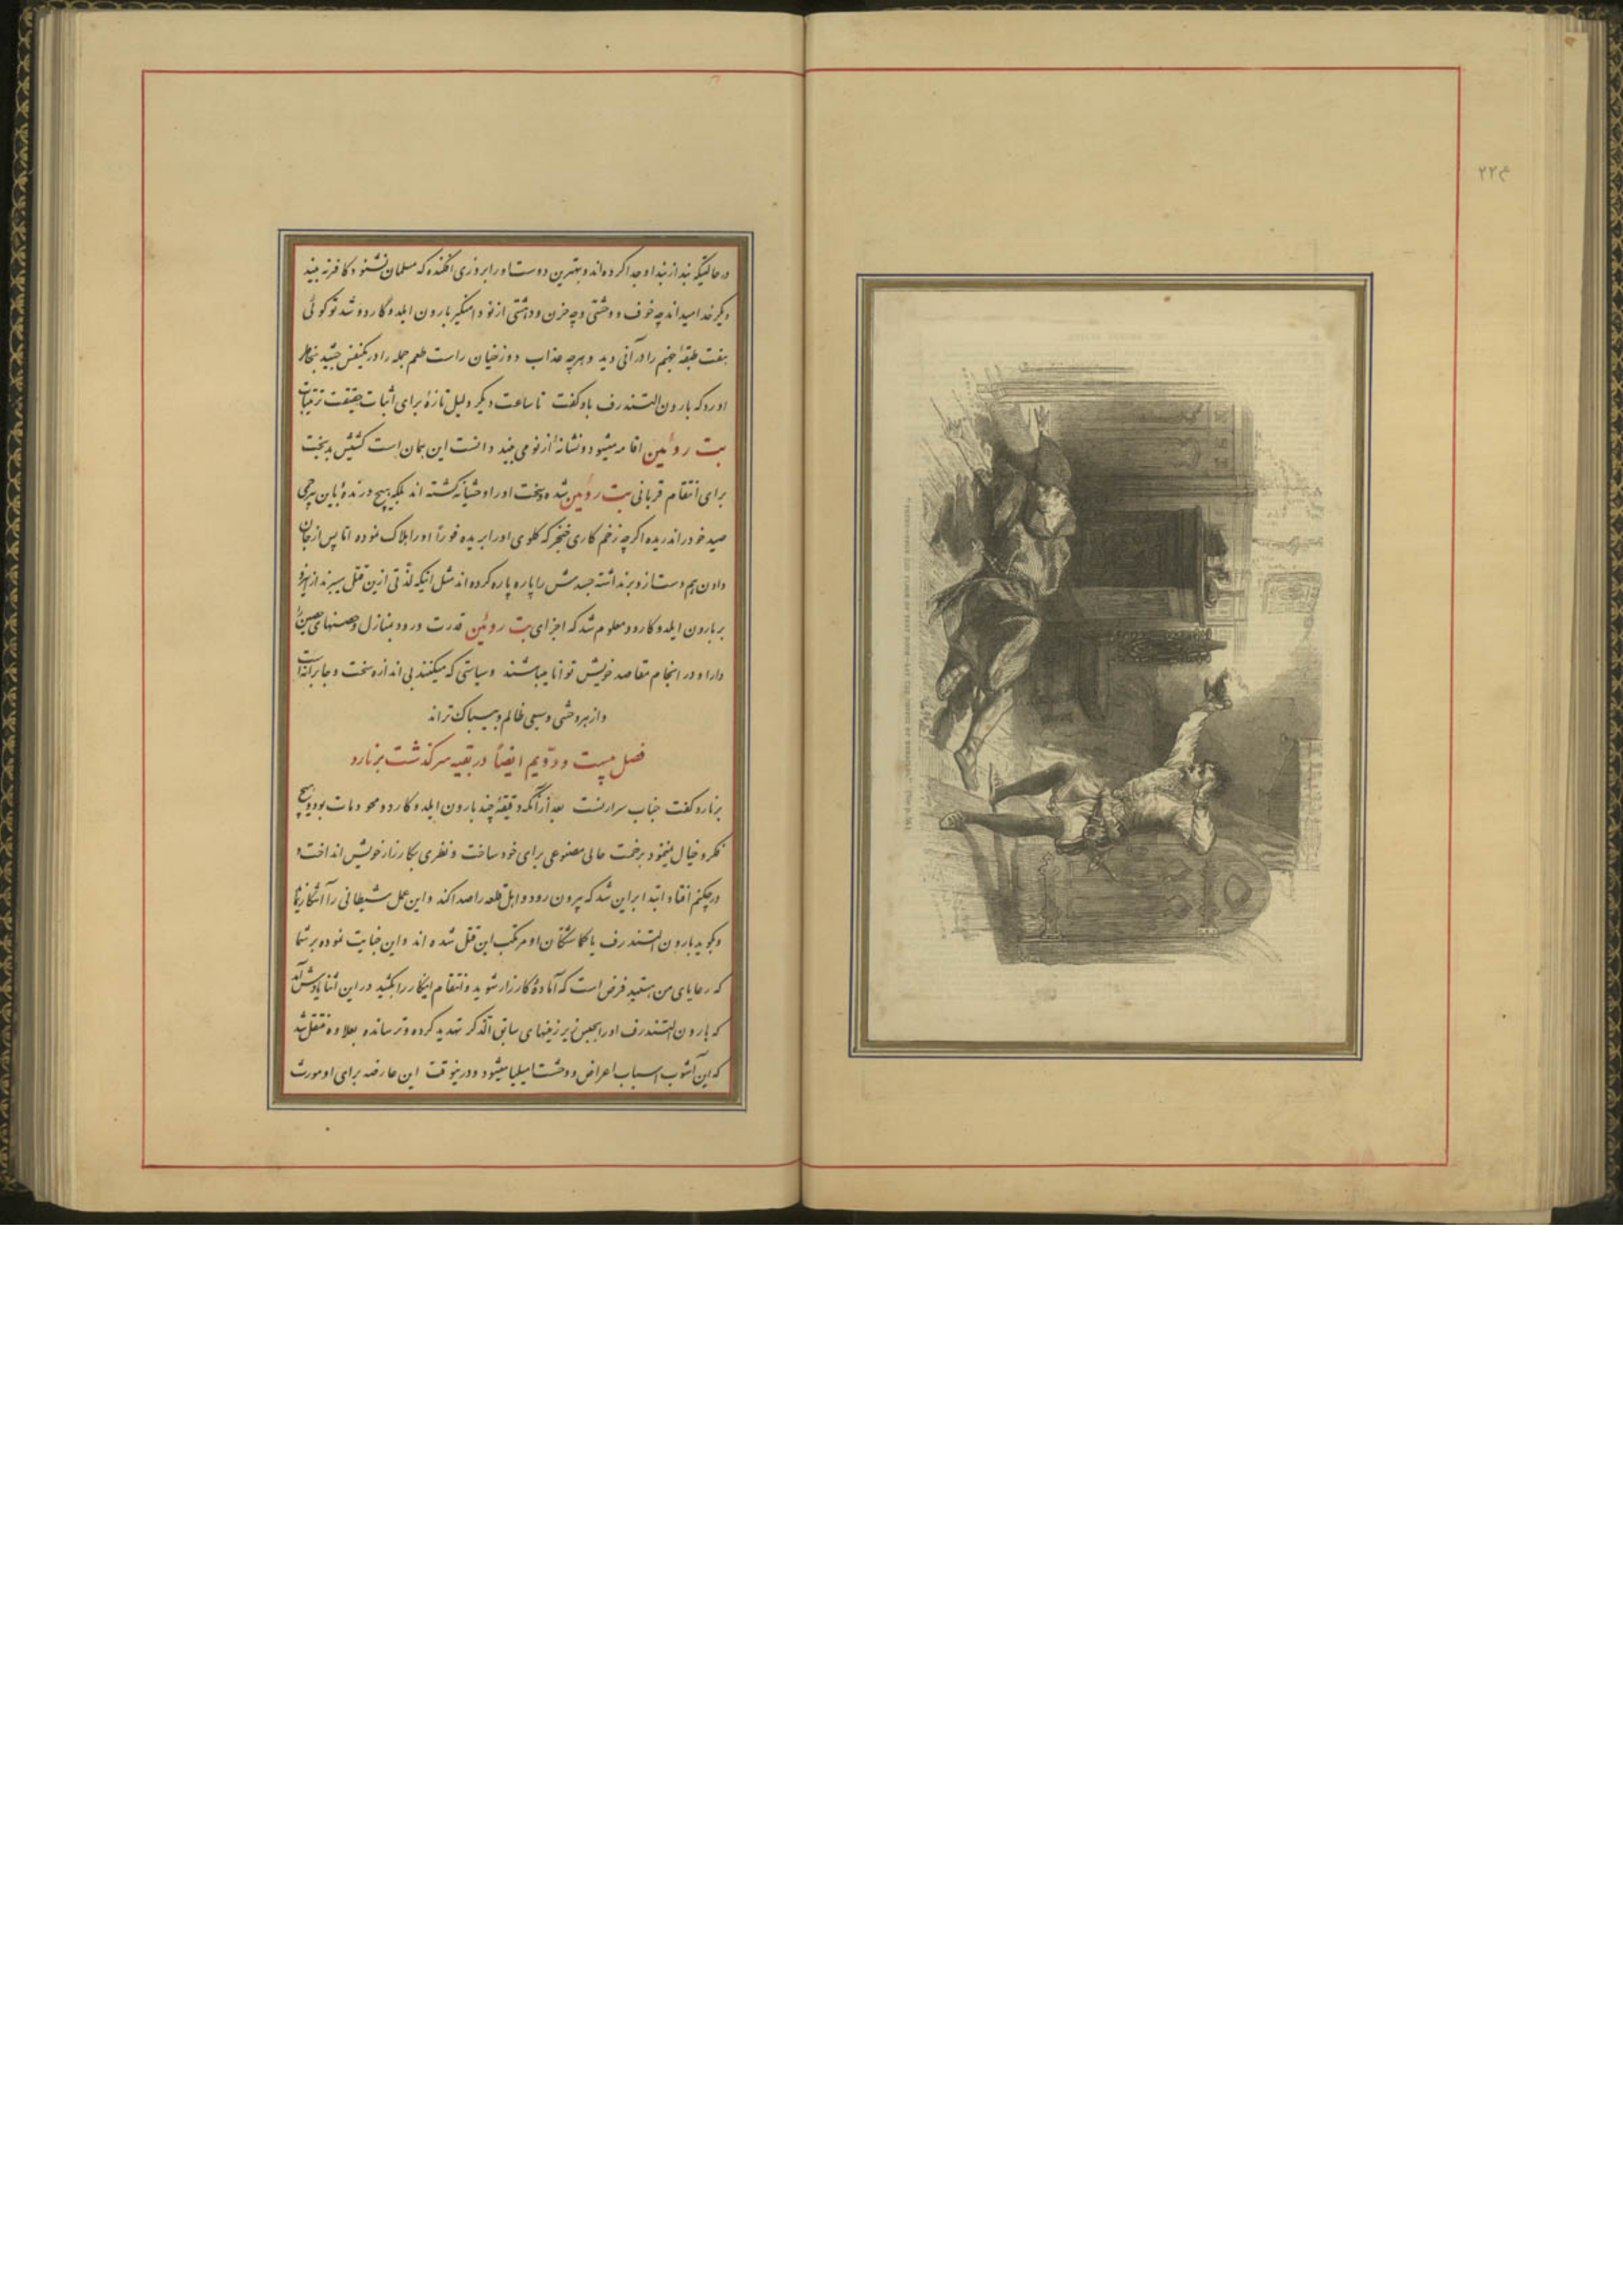 ۲۲۴
در حالتیکه بند از بند او جدا کرده‌اند و بهترین دوست او را بروزی افکنده که مسلمان نشنود کافر نه بیند
دیگر خدا میداند چه خوف و وحشتی و چه حزن و دهشتی از نو دامنگیر بارون ایلدوگاردو شد تو گوئی
هفت طبقهٔ جهنم را در آنی دید و هرچه عذاب دوزخیان راست طعم جمله را در یکنفس چشید بخاطر
اورد که بارون التندرف باو گفت تا ساعت دیگر دلیل تازهٔ برای اثبات حقیقت ترتیبات
بت روئین اقامه میشود و نشانهٔ از نو می بیند دانست این همان است کشیش بدبخت
برای انتقام قربانی بت روئین شد و سخت او را وحشیانه کشته اند بلکه هیچ درندهٔ باین بیرحمی
صید خود را ندریده اگرچه زخم کاری خنجر که گلوی او را بریده فوراً او را هلاک نموده اما پس از جان
دادن هم دست ازو برنداشته جسدش را پاره پاره کرده اند مثل اینکه لذتی ازین قتل میبرند ازینرو
بر بارون ایلدوگاردو معلوم شد که اجزای بت روئین قدرت ورود بمنازل و حصنهای حصین را
دارا و در انجام مقاصد خویش توانا میباشند و سیاستی که میکنند بی اندازه سخت و جابرانه است
و از هر وحشی و سبعی ظالم و بیباک تراند
فصل بیست و دویم ایضاً در بقیه سرگذشت برنارد
برنارد گفت جناب سرارنست بعد از آنکه دقیقهٔ چند بارون ایلدوگاردو محو و مات بود و هیچ
فکر و خیال نمینمود بزحمت حالی مصنوعی برای خود ساخت و نظری بکارزار خویش انداخت و
در چکنم افتاد ابتدا براین شد که بیرون رود و اهل قلعه را صدا کند و این عمل شیطانی را آشکار نماید
و بگوید بارون التندرف یا گماشتگان او مرتکب این قتل شده اند و این خیانت نموده بر شما
که رعایای من هستید فرض است که آمادهٔ کارزار شوید و انتقام اینکار را بکشید در این اثنا یادش آمد
که بارون التندرف او را بحبس زیر زمینهای سابق الذکر تهدید کرده و ترسانده بعلاوه منتقل شد
که این آشوب اسباب اعراض و وحشت امیلیا میشود و در ینوقت این عارضه برای او مورث